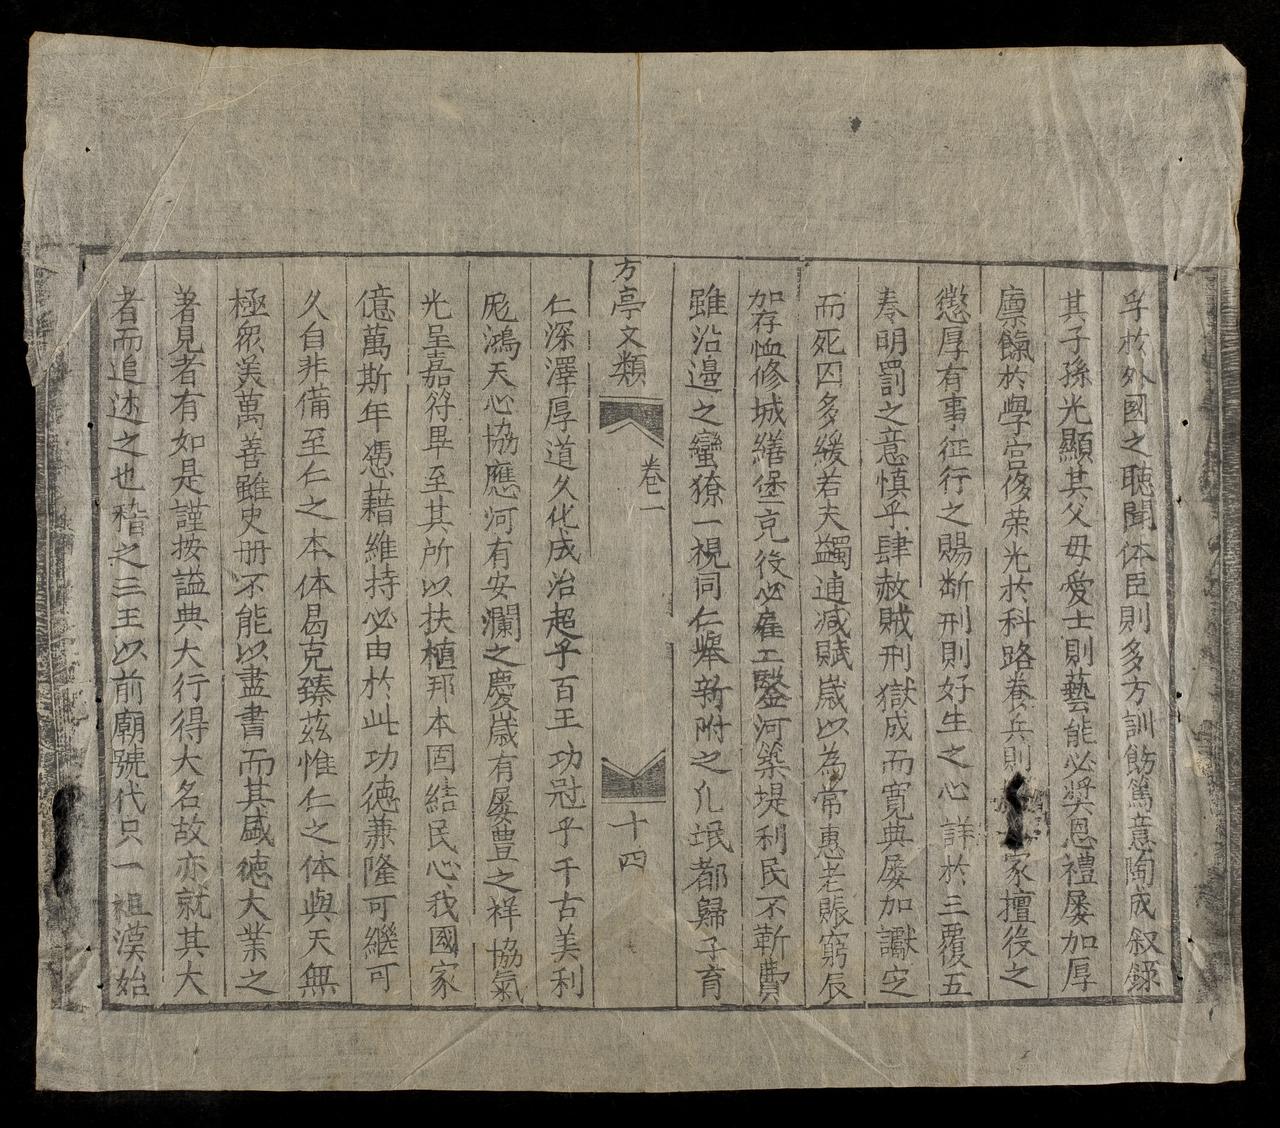 孚於外國之聽聞体臣則多方訓飭篤意陶成叙錄
其子孫光顯其父母愛士則藝能必奬恩禮屡加厚
廩餼於學宮侈荣光於科路養兵則家擅役之
懲厚有事征行之賜断刑則好生之心詳於三覆五
奏明罰之意慎乎肆赦賊刑獄成而寛典屡加讞㝎
而死囚多緩若夫蠲逋减賦歲以為常惠老賑窮辰
加存恤修城繕堡克役必雇工鑿河築堤利民不靳費
雖沿邊之蠻獠一視同仁舉新附之凢氓都歸子育
方亭文類
卷一
十四
仁深澤厚道久化成治超乎百王功冠乎千古美利
厖鴻天心協應河有安瀾之慶歲有屡豊之祥協氣
光呈嘉符畢至其所以扶植邦本固結民心我國家
億萬斯年憑藉維持必由於此功德兼隆可繼可
久自非備至仁之本体曷克臻茲惟仁之体與天無
極衆美萬善雖史册不能以盡書而其盛徳大業之
著見者有如是謹按謚典大行得大名故亦就其大
者而追述之也稽之三王以前廟號代只一祖漢始